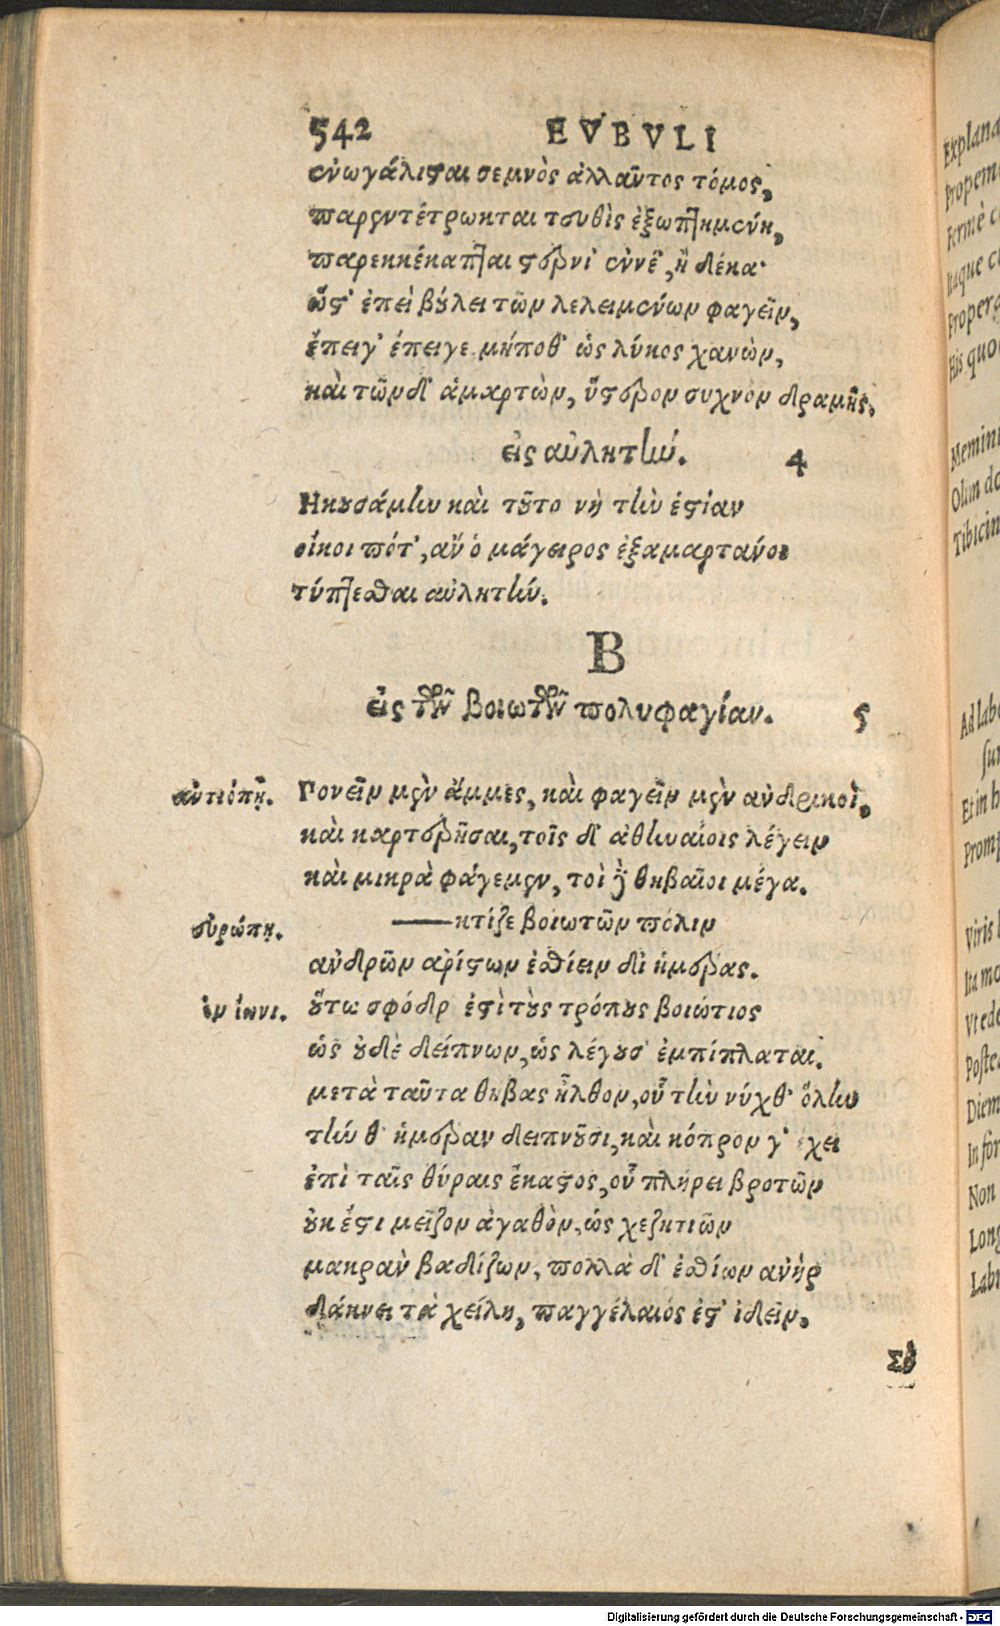 542 EVBVLI
ἐνωγάλισαι σεμνὸς ἀλλᾶντος τόμος,
παρεντέτρωκται τευθὶς ἐξωπτημένη,
παρεκκέκαπται στερνί' ἐννέ', ἢ δέκα·
ὥστ' ἐπεὶ βούλει τῶν λελειμένων φαγεῖν,
ἔπειγ' ἔπειγε μήποθ' ὡς λύκος χανὼν,
καὶ τῶνδ' ἁμαρτὼν, ὕστερον συχνὸν δραμῇς.
εἰς αὐλητήν. 4
Ηκουσάμην καὶ τοῦτο νὴ τὴν ἑστίαν
οἴκοι πότ', ἂν ὁ μάγειρος ἐξαμαρτάνοι
τύπτεσθαι αὐλητήν.
Β
εἰς τῶν βοιωτῶν πολυφαγίαν. 5
ἀντιόπῃ. Γονεῖν μὲν ἄμμες, καὶ φαγεῖν μὲν ἀνδρικοὶ,
καὶ καρτερῆσαι, τοῖς δ' ἀθηναίοις λέγειν
καὶ μικρὰ φάγεμεν, τοὶ δὲ θηβαῖοι μέγα.
εὐρώπῃ. —κτίζε βοιωτῶν πόλιν
ἀνδρῶν ἀρίστων ἐσθίειν δι' ἡμέρας.
ἐν ἴωνι. οὕτω σφόδρ' ἐστὶ τοὺς τρόπους βοιώτιος
ὡς οὐδὲ δείπνων, ὡς λέγουσ' ἐμπίπλαται.
μετὰ ταῦτα θήβας ἦλθον, οὗ τὴν νύχθ' ὅλην
τήν θ' ἡμέραν δειπνοῦσι, καὶ κόπρον γ' ἔχει
ἐπὶ ταῖς θύραις ἕκαστος, οὗ πλήρει βροτῶν
οὐκ ἔστι μεῖζον ἀγαθὸν, ὡς χεζητιῶν
μακρὰν βαδίζων, πολλὰ δ' ἐσθίων ἀνὴρ
δάκνει τὰ χείλη, παγγέλαιός ἐστ' ἰδεῖν.
Σὺ
Explana
Propem
Fermè c
Itaque c
Proper
His quo
Memini
Olim do
Tibicin
Ad lab
Et in h
Promp
Viris
Ita mo
Vt ede
Poste
Diem
In for
Non
Long
Lab
Digitalisierung gefördert durch die Deutsche Forschungsgemeinschaft - DFG